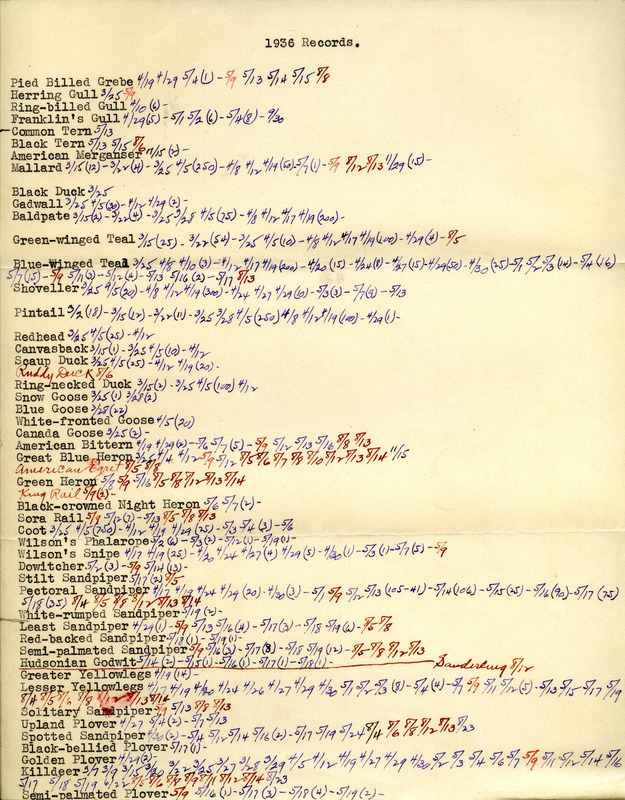 1936 Records.
Pied Billed Grebe 4/19 4/29 5/4 (1) - 5/9 5/13 5/14 5/15 8/8
Herring Gull 3/25 5/9
Ring-billed Gull 4/10 (6) -
Franklin's Gull 4/29(5) - 5/1 5/2 (6) - 5/4(8) - 9/30
Common Tern 5/13
Black Tern 5/13 5/15 8/6
American Merganser 11/15 (2) -
Mallard 3/15 (12) - 3/22 (4) - 3/25 4/5 (250) - 4/8 4/12 4/19 (50) 5/7 (1) - 5/9 8/12 8/13 11/29 (15) -
Black Duck 3/25
Gadwall 3/25 4/5 (30) - 4/12 4/29 (2) -
Baldpate 3/15(2) - 3/22(4) - 3/25 3/28 4/5 (75) - 4/8 4/12 4/17 4/19 (200) -
Green-winged Teal 3/15 (25) - 3/22 (54) - 3/25 4/5 (10) - 4/8 4/12 4/17 4/19 (100) - 4/29 (4) - 8/5
Blue-Winged Teal 3/25 4/8 4/10 (3) - 4/12 4/17 4/19 (200) - 4/20 (15) - 4/24 (8) - 4/27 (15) - 4/29 (50) - 4/30 (25) - 5/1 5/2 5/3 (14) - 5/4 (16)
5/7 (15) - 5/9 5/11 (3) - 5/12 (4) - 5/13 5/16 (2) - 5/17 8/13
Shoveller 3/25 4/5 (20) - 4/8 4/12 4/19 (300) - 4/24 4/27 4/29 (10) - 5/3 (3) - 5/7 (9) - 5/13
Pintail 3/2 (18) - 3/15 (12) - 3/22 (11) - 3/25 3/28 4/5 (250) 4/8 4/12 4/19 (100) - 4/29 (1) -
Redhead 3/25 4/5 (25) - 4/12
Canvasback 3/15 (1) - 3/25 4/5 (10) - 4/12
Scaup Duck 3/25 4/5 (25) - 4/12 4/19 (20) -
Ruddy Duck 8/6
Ring-necked Duck 3/15 (2) - 3/25 4/5 (100) 4/12
Snow Goose 3/25 (1) 3/28 (2)
Blue Goose 3/28 (22)
White-fronted Goose 4/5 (20)
Canada Goose 3/25 (2) -
American Bittern 4/19 4/29 (2) - 5/6 5/7 (5) - 5/9 5/12 5/13 5/16 8/8 8/13
Great Blue Heron 3/25 4/4 4/12 5/9 5/12 8/5 8/6 8/7 8/8 8/10 8/12 8/13 8/14 11/15
American Egret 8/5 8/8
Green Heron 5/8 5/9 5/16 8/5 8/8 8/12 8/13 8/14
King Rail 5/9 (2) -
Black-crowned Night Heron 5/6 5/7 (2) -
Sora Rail 5/9 5/12 (7) - 5/13 8/5 8/8 8/13
Coot 3/25 4/5 (750) - 4/12 4/19 4/29 (25) - 5/3 5/4 (3) - 5/6
Wilson's Phalarope 5/2 (6) - 5/3 (2) - 5/12 (1) - 5/19 (1) -
Wilson's Snipe 4/17 4/19 (25) - 4/20 4/24 4/27 (4) 4/29 (5) - 4/30 (1) - 5/3 (1) - 5/7 (5) - 5/9
Dowitcher 5/2 (3) - 5/9 5/14 (13) -
Stilt Sandpiper 5/17 (2) 8/5
Pectoral Sandpiper 4/17 4/19 4/24 4/29 (20) - 4/30 (3) - 5/1 5/9 5/12 5/13 (105-41) - 5/14 (106) - 5/15 (25) - 5/16 (90) - 5/17 (75)
5/18 (35) 8/4 8/5 8/8 8/12 8/13 8/14
White-rumped Sandpiper 5/19 (2) -
Least Sandpiper 4/29 (1) - 5/9 5/13 5/16 (4) - 5/17 (3) - 5/18 5/19 (6) - 8/5 8/8
Red-backed Sandpiper 5/18 (1) - 5/19 (1) -
Semi-palmated Sandpiper 5/9 5/16 (3) - 5/17 (8) - 5/18 5/19 (12) - 8/5 8/8 8/12 8/13
Hudsonian Godwit 5/14 (2) - 5/15 (1) - 5/16 (1) - 5/17 (1) - 5/18 (1) - Sanderling 8/12
Greater Yellowlegs 4/19 (14) -
Lesser Yellowlegs 4/17 4/19 4/20 4/24 4/26 4/27 4/29 4/30 5/1 5/2 5/3 (8) - 5/4 (4) - 5/7 5/9 5/11 5/12 (5) - 5/13 5/15 5/17 5/19
8/4 8/5 8/6 8/8 8/12 8/13 8/14
Solitary Sandpiper 5/9 5/13 8/8 8/13
Upland Plover 4/27 5/4 (2) - 5/7 5/13
Spotted Sandpiper 4/30 (2) - 5/4 5/12 5/14 5/16 (2) - 5/17 5/19 5/24 8/4 8/6 8/8 8/12 8/13 8/23
Black-bellied Plover 5/17 (1) -
Golden Plover 4/29 (2)
Killdeer 3/7 3/9 3/15 3/20 3/22 3/25 3/27 3/28 3/29 4/5 4/12 4/19 4/27 4/29 4/30 5/2 5/3 5/4 5/6 5/7 5/9 5/11 5/12 5/14 5/16
5/17 5/18 5/19 6/22 8/5 8/6 8/8 8/9 8/11 8/12 8/14 8/23
Semi-palmated Plover 5/9 5/16 (1) - 5/17 (3) - 5/18 (4) - 5/19 (2) -